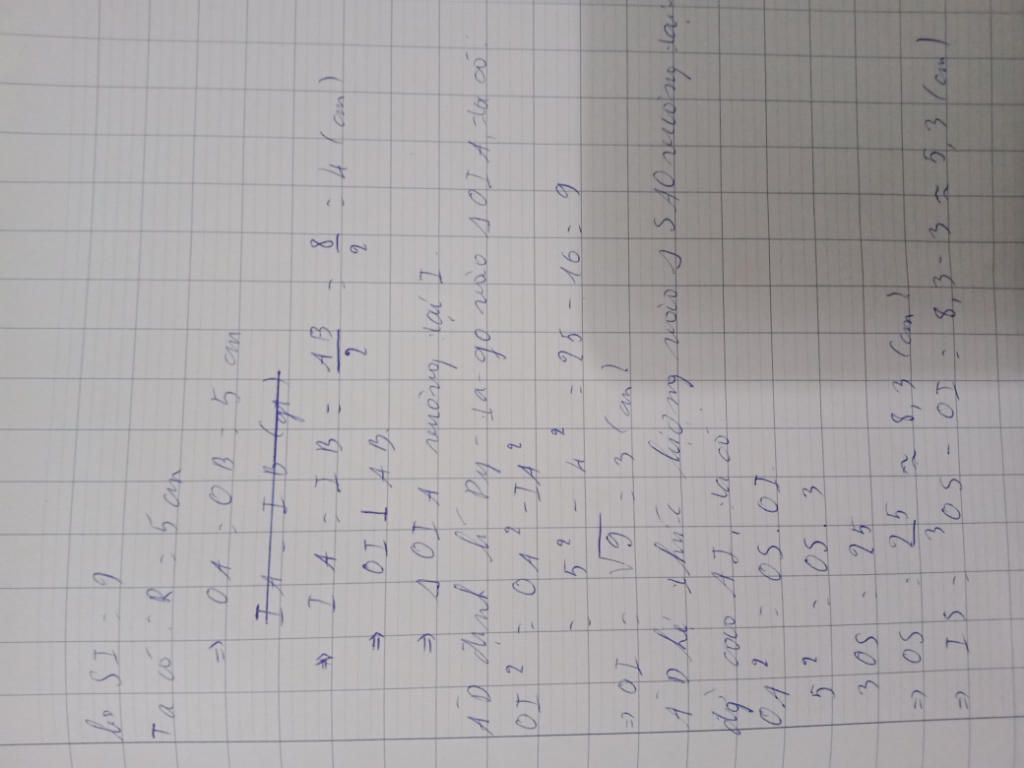 b, SI = ?
Ta có: R = 5 cm
=> OA = OB = 5 cm
IA = IB (gt)
=> IA = IB = AB/2 = 8/2 = 4 (cm)
=> OI ⊥ AB
=> Δ OIA vuông tại I.
ÁD định lí Py-ta-go vào Δ OIA, ta có
OI² = OA² - IA²
= 5² - 4² = 25 - 16 = 9
=> OI = √9 = 3 (cm)
ÁD hệ thức lượng vào Δ SAO vuông tại
đg cao AI, ta có
OA² = OS . OI
5² = OS . 3
3 OS = 25
=> OS = 25/3 ≈ 8,3 (cm)
=> IS = OS - OI = 8,3 - 3 ≈ 5,3 (cm)